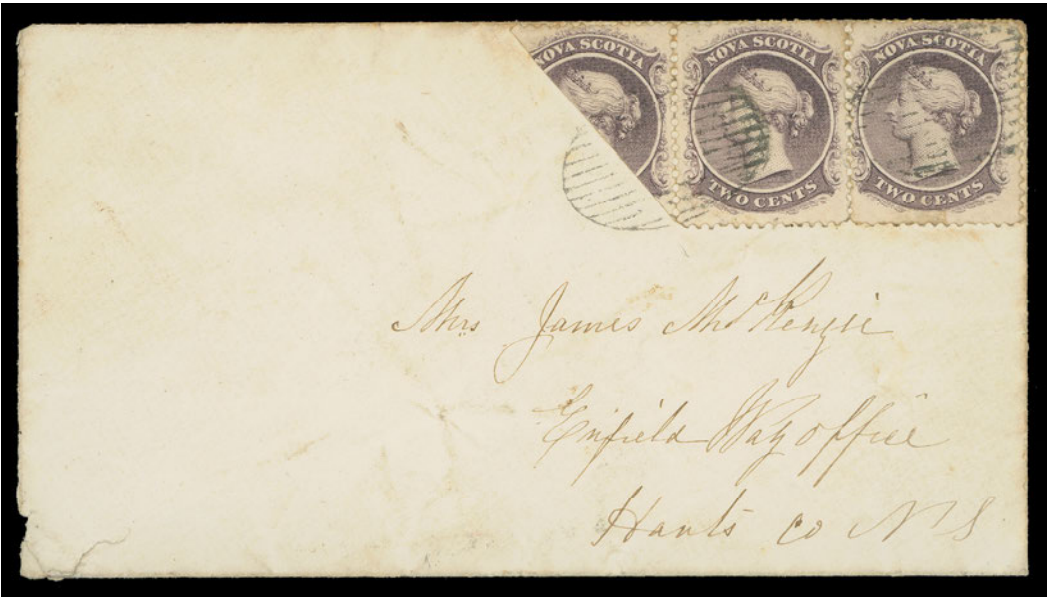 NOVA SCOTIA NOVA SCOTIA NOVA SCOTIA
TWO CENTS TWO CENTS
Mrs James McKenzie
Enfield Way office
Hants co N S